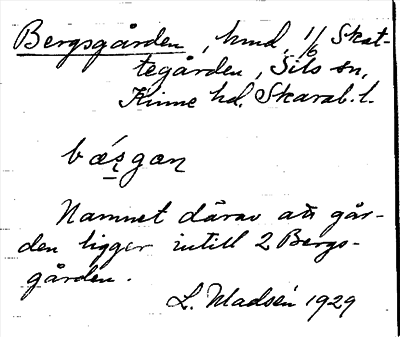 Bergsgården, hmd, 1/6 Skat-
tegården, Sils sn,
Kinne hd. Skarab. l.
bǽʂgaɳ
Namnet därav att går-
den ligger intill 2 Bergs-
gården.
L. Madsén 1929